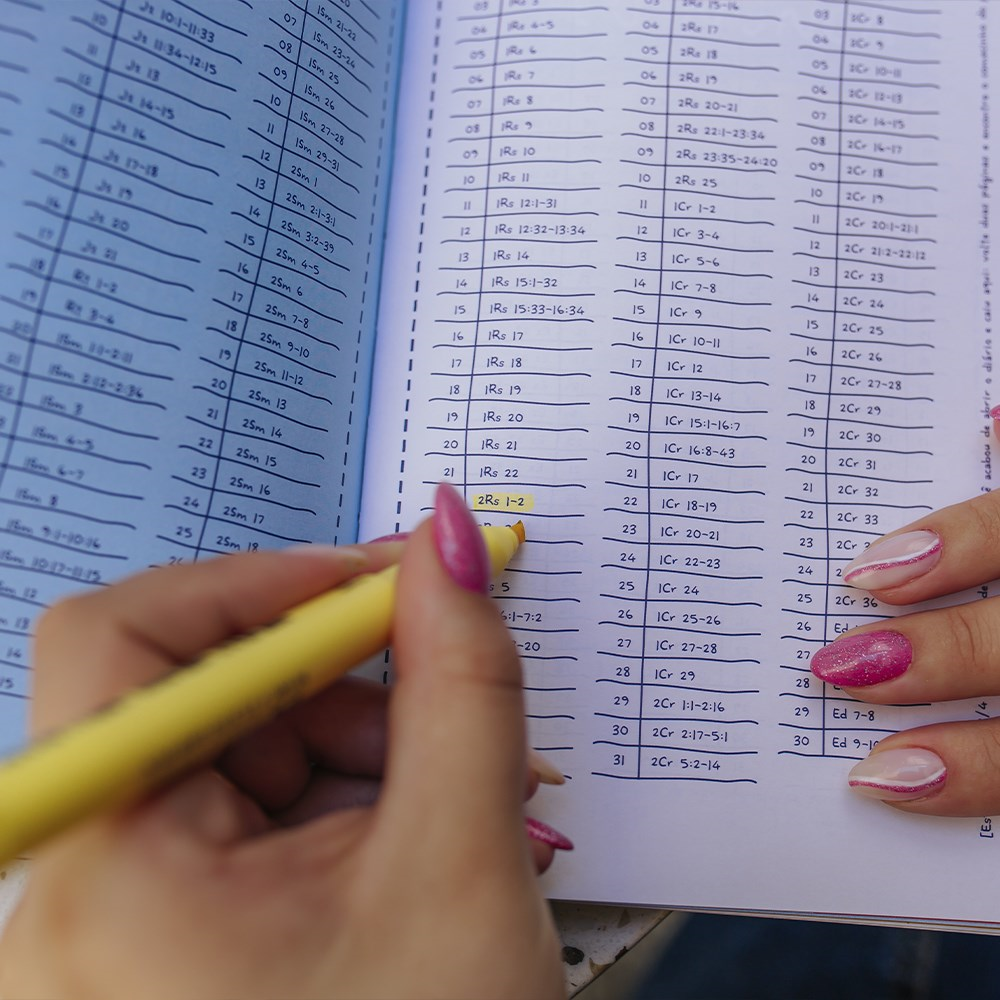 10:1-11:33
Js 11:34-12:15
Js 13
Js 14-15
Js 16
Js 17-18
Js 19
Js 20
Js 21
07 1Sm 21-22
08 1Sm 23-24
09 1Sm 25
10 1Sm 26
11 1Sm 27-28
12 1Sm 29-31
13 2Sm 1
14 2Sm 2:1-3:1
15 2Sm 3:2-39
16 2Sm 4-5
17 2Sm 6
18 2Sm 7-8
19 2Sm 9-10
20 2Sm 11-12
21 2Sm 13
22 2Sm 14
23 2Sm 15
24 2Sm 16
25 2Sm 17
2Sm 18
04 1Rs 4-5
05 1Rs 6
06 1Rs 7
07 1Rs 8
08 1Rs 9
09 1Rs 10
10 1Rs 11
11 1Rs 12:1-31
12 1Rs 12:32-13:34
13 1Rs 14
14 1Rs 15:1-32
15 1Rs 15:33-16:34
16 1Rs 17
17 1Rs 18
18 1Rs 19
19 1Rs 20
20 1Rs 21
21 1Rs 22
2Rs 1-2
s 5
6:1-7:2
-20
03 2Rs 15-16
04 2Rs 17
05 2Rs 18
06 2Rs 19
07 2Rs 20-21
08 2Rs 22:1-23:34
09 2Rs 23:35-24:20
10 2Rs 25
11 1Cr 1-2
12 1Cr 3-4
13 1Cr 5-6
14 1Cr 7-8
15 1Cr 9
16 1Cr 10-11
17 1Cr 12
18 1Cr 13-14
19 1Cr 15:1-16:7
20 1Cr 16:8-43
21 1Cr 17
22 1Cr 18-19
23 1Cr 20-21
24 1Cr 22-23
25 1Cr 24
26 1Cr 25-26
27 1Cr 27-28
28 1Cr 29
29 2Cr 1:1-2:16
30 2Cr 2:17-5:1
31 2Cr 5:2-14
03 2Cr 8
04 2Cr 9
05 2Cr 10-11
06 2Cr 12-13
07 2Cr 14-15
08 2Cr 16-17
09 2Cr 18
10 2Cr 19
11 2Cr 20:1-21:1
12 2Cr 21:2-22:12
13 2Cr 23
14 2Cr 24
15 2Cr 25
16 2Cr 26
17 2Cr 27-28
18 2Cr 29
19 2Cr 30
20 2Cr 31
21 2Cr 32
22 2Cr 33
23 2Cr
24 2
25 2Cr 36
26 Ed
27
28
29 Ed 7-8
30 Ed 9-10
acabou de abrir o diário e caiu aqui: volte duas páginas e encontre o